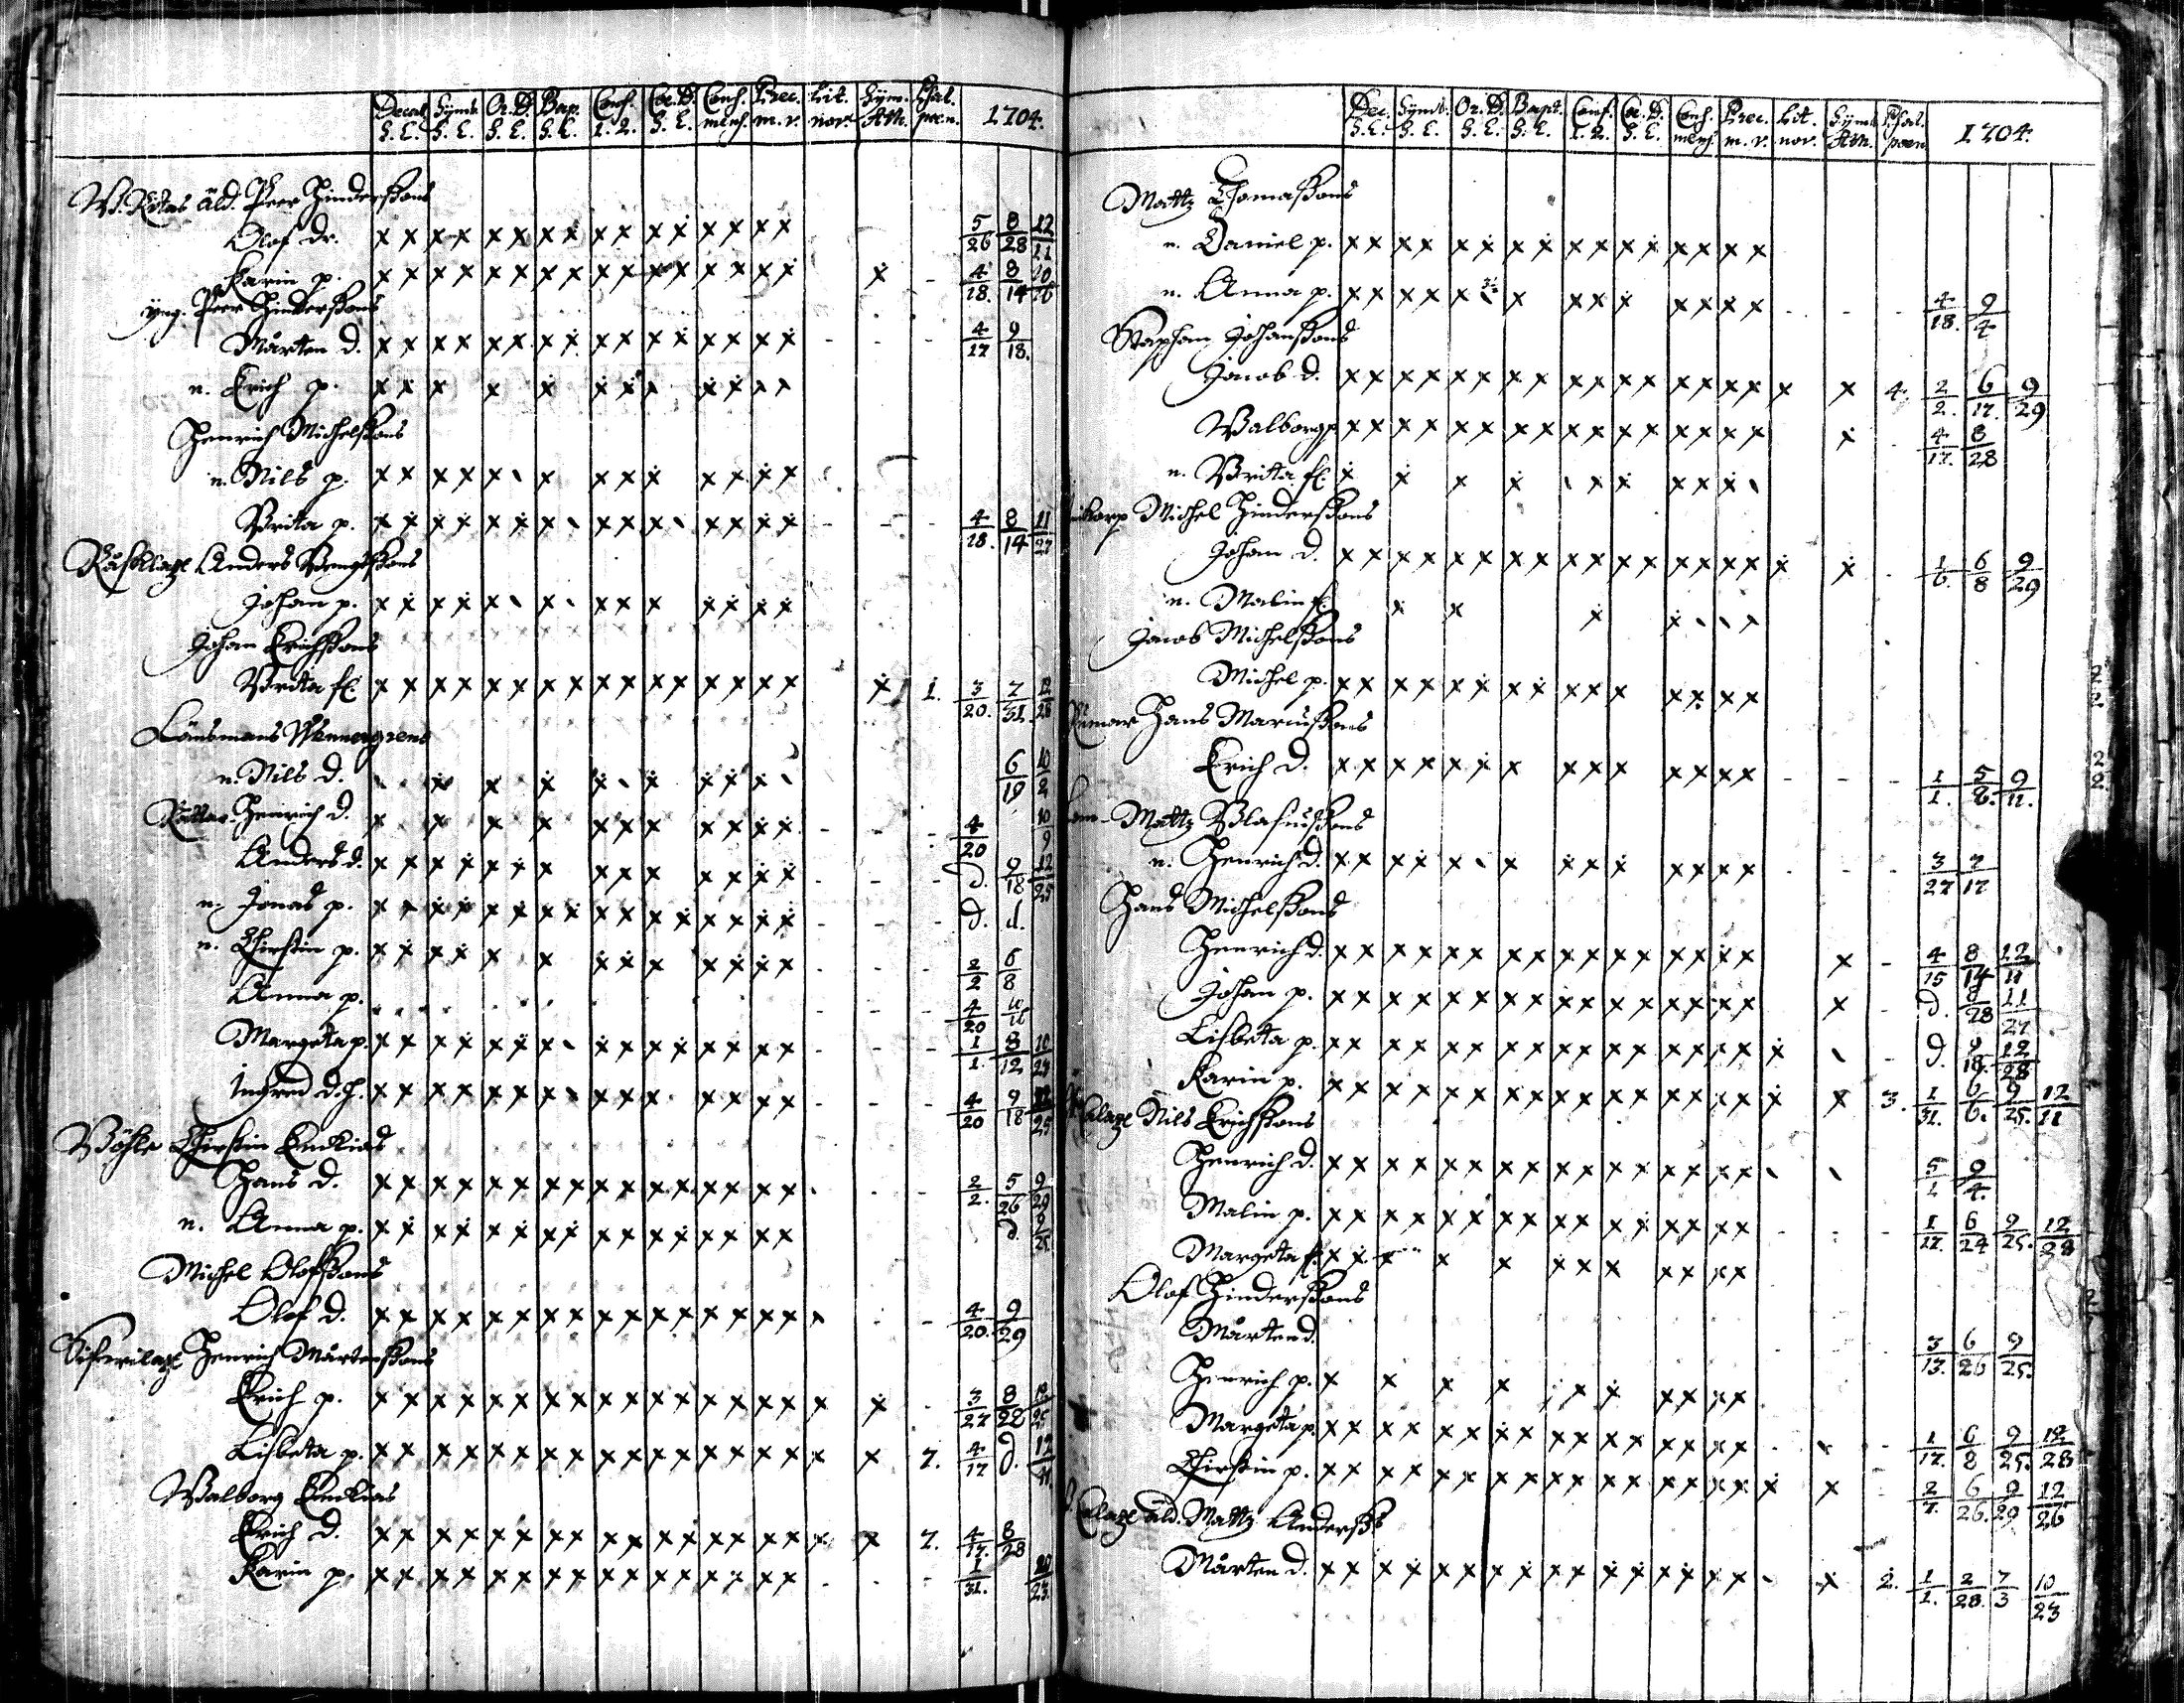 Decal. Symb. Or. D. Bap. Conf. Cœ. D. Conf. Prec. Lit. Sym. Psal.
S. E. S. E. S. E. S. E. 1. 2. S. E. mens. m. v. nov. Ath. poen. 1704.
äld. Peer Hinderssons
Olof dr. x x x x x x x x x x x x x x x x 5/26 8/28 12/11
Karin p. x x x x x x x x x x x x x x x x x - 4/18. 8/14 10/16
yng. Peer Hinderssons
Mårten d. x x x x x x x x x x x x x x x x - - - 4/17 9/18.
n. Erich p. x x x x x x x x x x x x
Henrich Michelssons
n. Nils p. x x x x x x x x x x x x x
Brita p. x x x x x x x x x x x x x x - - - 4/18. 8/14 11/27
Anders Bengtssons
Johan p. x x x x x x x x x x x x x
Johan Erichssons
Brita fl. x x x x x x x x x x x x x x x x x 1. 3/20. 7/31. 12/28
Länsmans Wennergrens
n. Nils d. x x x x x x x x 6/19 10/2
Henrich d. x x x x x x x x x x x - - - 4/20 10/9
Anders d. x x x x x x x x x x x x x x - - - d. 9/18 12/25
n. Jonas p. x x x x x x x x x x x x x x x x - - - d. d.
n. Chirstin p. x x x x x x x x x x x x x - - - 2/2 6/8
Anna p. - - - 4/20 10/16
Margeta p. x x x x x x x x x x x x x x x - - - 1/1. 8/12 10/29
Ingred d. h. x x x x x x x x x x x x x x - - - 4/20 9/18 12/25
Chirstin Enckias
Hans d. x x x x x x x x x x x x x x x x - - - 2/2. 5/26 9/29
n. Anna p. x x x x x x x x x x x x x x x x d. 9/25.
Michel Olofssons
Olof d. x x x x x x x x x x x x x x x x - - 4/20. 9/29
Henrich Mårtenssons
Erich p. x x x x x x x x x x x x x x x x x x - 3/27 8/28 12/25
Lisbeta p. x x x x x x x x x x x x x x x x x x 7. 4/17 d. 12/11.
Walborg Enckias
Erich d. x x x x x x x x x x x x x x x x x x 7. 4/17. 8/28
Karin p. x x x x x x x x x x x x x x x x - - - 1/31. 10/23.
Dec. Symb. Or. D. Bapt. Conf. Cœ. D. Conf. Prec. Lit. Symb. Psal.
S. E. S. E. S. E. S. E. 1. 2. S. E. mens. m. v. nov. Ath. poen. 1704.
Mattz Thomassons
n. Daniel p. x x x x x x x x x x x x x x x x
n. Anna p. x x x x x x x x x x x x x - - - 4/18. 9/4
Staphan Johanssons
Jacob d. x x x x x x x x x x x x x x x x x x 4. 2/2. 6/17. 9/29
Walborg p. x x x x x x x x x x x x x x x x x - 4/17. 8/28
n. Brita fl. x x x x x x x x x
Michel Hinderssons
Johan d. x x x x x x x x x x x x x x x x x x - 1/6. 6/8 9/29
n. Malin fl. x x x x x
Jacob Michelssons
Michel p. x x x x x x x x x x x x x x x
Hans Mariussons
Erich d. x x x x x x x x x x x x x x - - - 1/1. 5/8. 9/11.
Mattz Blasiussons
n. Henrich d. x x x x x x x x x x x x x - - - 3/27 7/17
Hans Michelssons
Henrich d. x x x x x x x x x x x x x x x x x - 4/15 8/14 12/11
Johan p. x x x x x x x x x x x x x x x x x - d. 8/28 11/27
Lisbeta p. x x x x x x x x x x x x x x x x x - d. 9/18. 12/28
Karin p. x x x x x x x x x x x x x x x x x x 3. 1/31. 6/6. 9/25. 12/11
Nils Erichssons
Henrich d. x x x x x x x x x x x x x x x x 5/1 9/4.
Malin p. x x x x x x x x x x x x x x x x - - - 1/17. 6/24 9/25. 12/28
Margeta fl. x x x x x x x x x x x x
Olof Hinderssons
Mårten d. - - - 3/13. 6/26 9/25.
Henrich p. x x x x x x x x x x
Margeta p. x x x x x x x x x x x x x x x x - - 1/17. 6/8 9/25. 12/28
Chirstin p. x x x x x x x x x x x x x x x x x x - 2/7. 6/26. 9/29 12/26
äld. Mattz Anderss
Mårten d. x x x x x x x x x x x x x x x x - x 2. 1/1. 2/28. 7/3 10/23